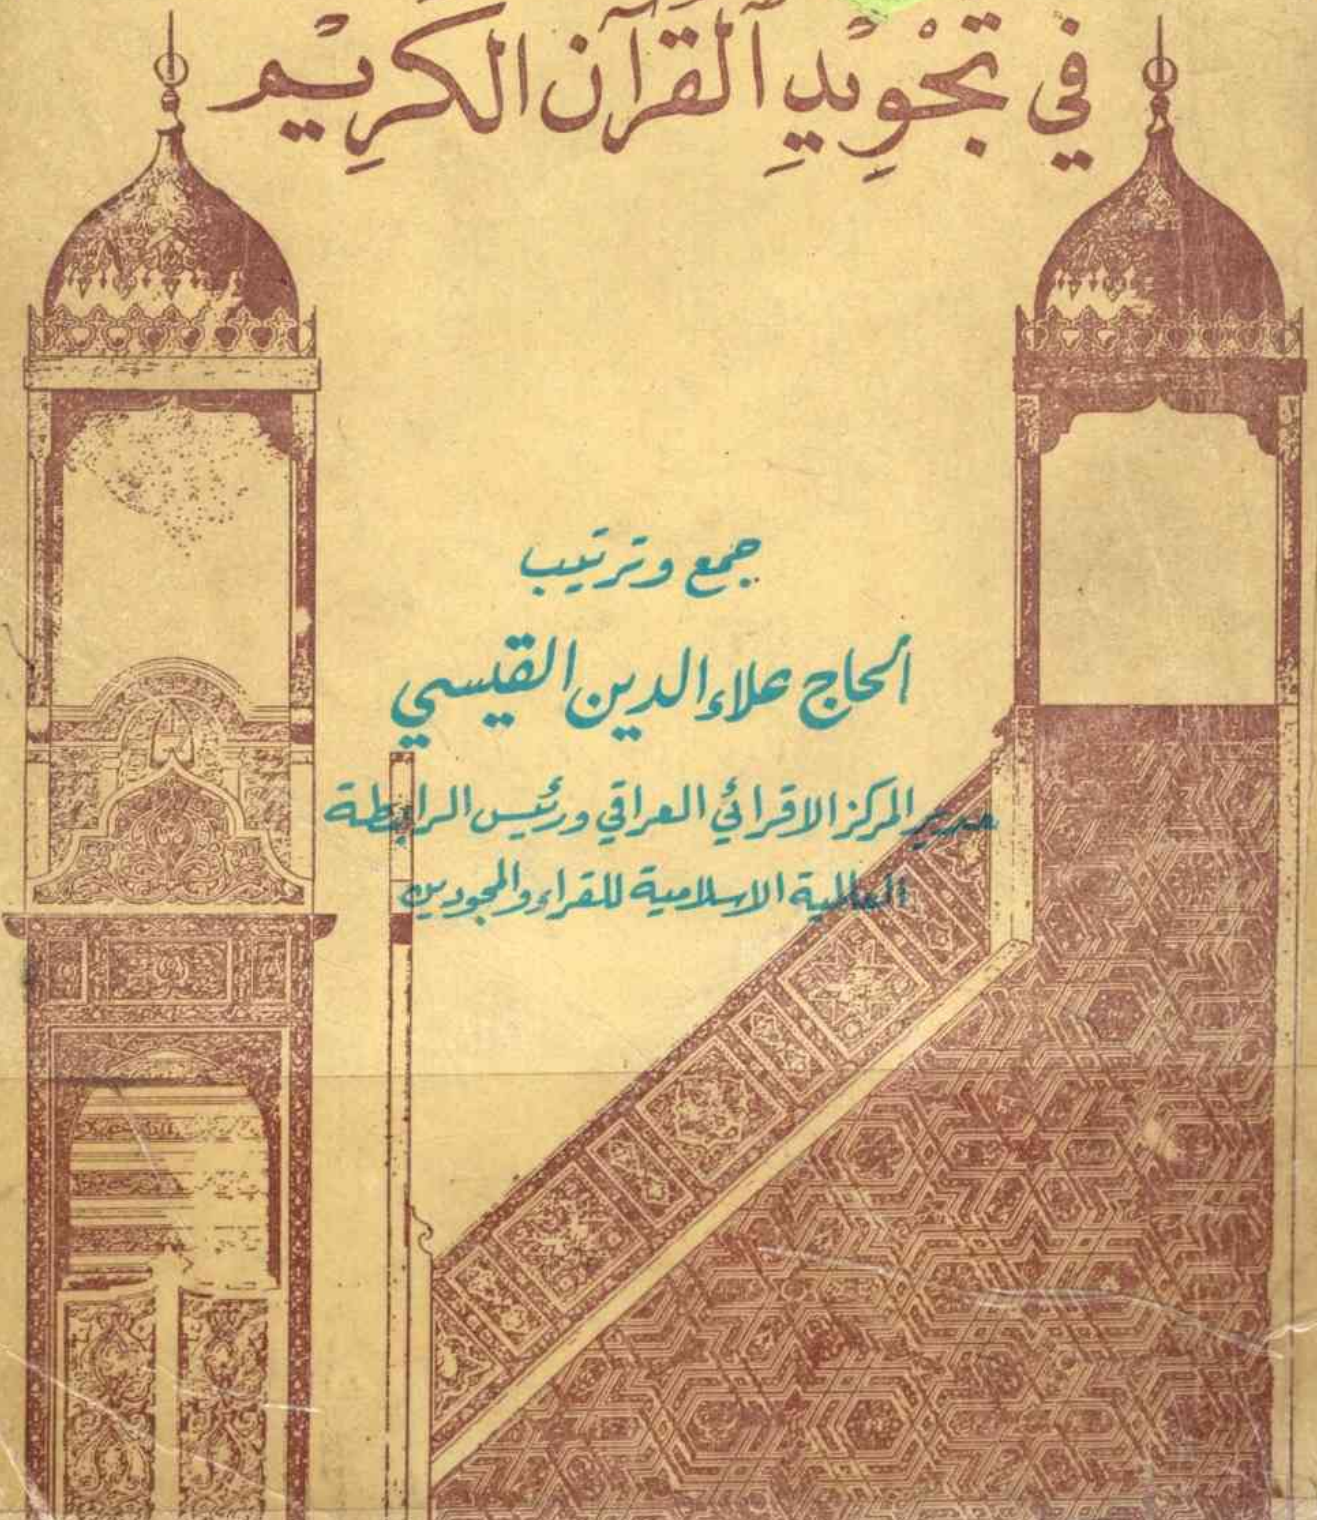 في تَجْوِيدِ ٱلْقُرآنِ الكَرِيْم
جمع وترتيب
الحاج علاء الدين القيسي
مدير المركز الاقرائي العراقي ورئيس الرابطة
العالمية الاسلامية للقراء والمجودين